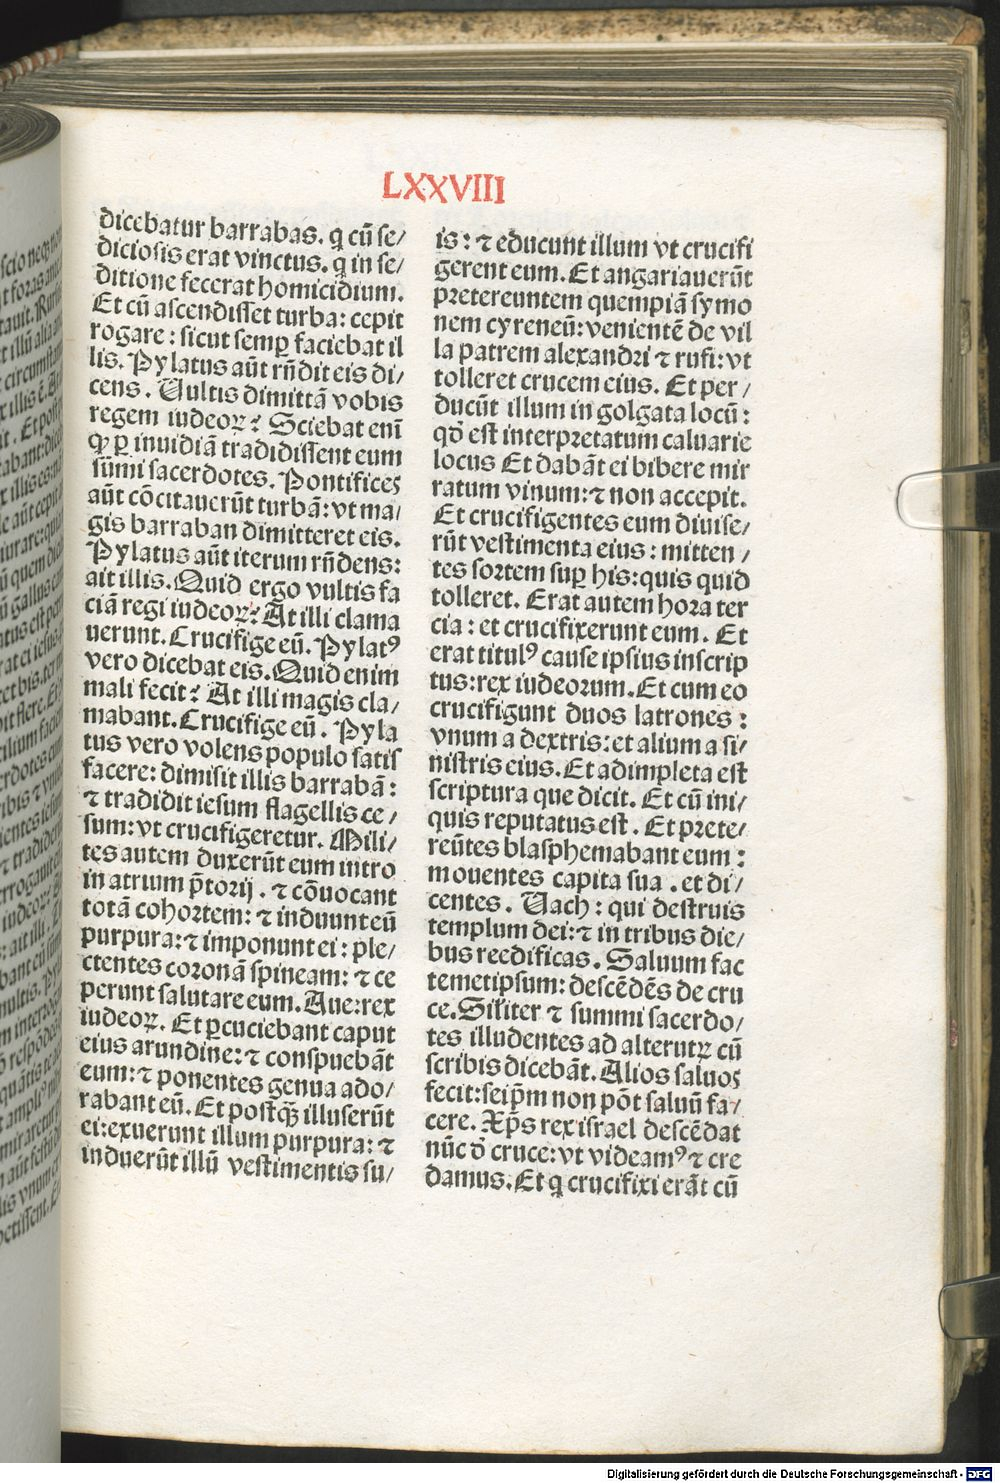 LXXVIII
dicebatur barrabas. q̃ cũ se/
diciosis erat vinctus. q̃ in se/
ditione fecerat homicidium.
Et cũ ascendisset turba: cepit
rogare: sicut semꝑ faciebat il
lis. Pylatus aũt rñdit eis di/
cens. Uultis dimittã vobis
regem iudeoꝝ? Sciebat enĩ
ꝙ ꝑ inuidiã tradidissent eum
sũmi sacerdotes. Pontifices
aũt cõcitauerũt turbã: vt ma/
gis barraban dimitteret eis.
Pylatus aũt iterum rñdens:
ait illis. Quid ergo vultis fa
ciã regi iudeoꝝ? At illi clama
uerunt. Crucifige eũ. Pylatꝰ
vero dicebat eis. Quid enim
mali fecit? At illi magis cla/
mabant. Crucifige eũ. Pyla
tus vero volens populo satis
facere: dimisit illis barrabã:
⁊ tradidit iesum flagellis ce/
sum: vt crucifigeretur. Mili/
tes autem duxerũt eum intro
in atrium p̃torij. ⁊ cõuocant
totã cohortem: ⁊ induunt eũ
purpura: ⁊ imponunt ei: ple/
ctentes coronã spineam: ⁊ ce
perunt salutare eum. Aue: rex
iudeoꝝ. Et ꝑcuciebant caput
eius arundine: ⁊ conspuebãt
eum: ⁊ ponentes genua ado/
rabant eũ. Et postꝙ̃ illuserũt
ei: exuerunt illum purpura: ⁊
induerũt illũ vestimentis su/
is: ⁊ educunt illum vt crucifi
gerent eum. Et angariauerũt
pretereuntem quempiã symo
nem cyreneũ: venientẽ de vil
la patrem alexandri ⁊ rufi: vt
tolleret crucem eius. Et per/
ducũt illum in golgata locũ:
qđ est interpretatum caluarie
locus Et dabãt ei bibere mir
ratum vinum: ⁊ non accepit.
Et crucifigentes eum diuise/
rũt vestimenta eius: mitten/
tes sortem suꝑ his: quis quid
tolleret. Erat autem hora ter
cia: et crucifixerunt eum. Et
erat titulꝰ cause ipsius inscrip
tus: rex iudeorum. Et cum eo
crucifigunt duos latrones:
vnum a dextris: et alium a si/
nistris eius. Et adimpleta est
scriptura que dicit. Et cũ ini/
quis reputatus est. Et prete/
reũtes blasphemabant eum:
mouentes capita sua. et di/
centes. Uach: qui destruis
templum dei: ⁊ in tribus die/
bus reedificas. Saluum fac
temetipsum: descẽdẽs de cru
ce. Siliter ⁊ summi sacerdo/
tes illudentes ad alterutꝝ cũ
scribis dicebãt. Alios saluos
fecit: seip̃m non põt saluũ fa/
cere. Xp̃s rex israel descẽdat
nũc đ cruce: vt videamꝰ ⁊ cre
damus. Et q̃ crucifixi erãt cũ
Digitalisierung gefördert durch die Deutsche Forschungsgemeinschaft - DFG